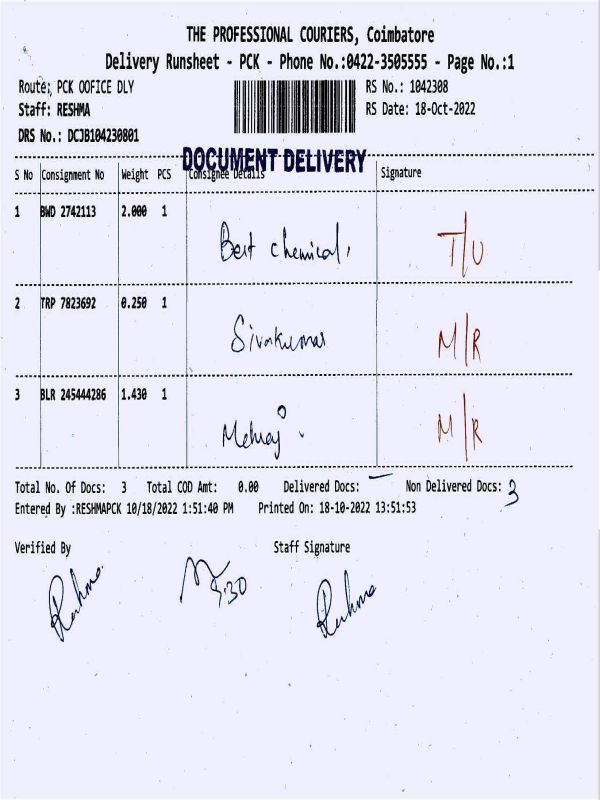 THE PROFESSIONAL COURIERS, Coimbatore
Delivery Runsheet - PCK - Phone No.:0422-3505555 - Page No.:1
Route: PCK OOFICE DLY
RS No.: 1042308
Staff: RESHMA
RS Date: 18-Oct-2022
DRS No.: DCJB104230801
DOCUMENT DELIVERY
S No Consignment No Weight PCS Consignee Details Signature
1 BWD 2742113 2.000 1 Best chemical, T/U
2 TRP 7823692 0.250 1 Sivakumar M/R
3 BLR 245444286 1.430 1 M/R
Total No. Of Docs: 3 Total COD Amt: 0.00 Delivered Docs: — Non Delivered Docs: 3
Entered By :RESHMAPCK 10/18/2022 1:51:40 PM Printed On: 18-10-2022 13:51:53
Verified By Staff Signature